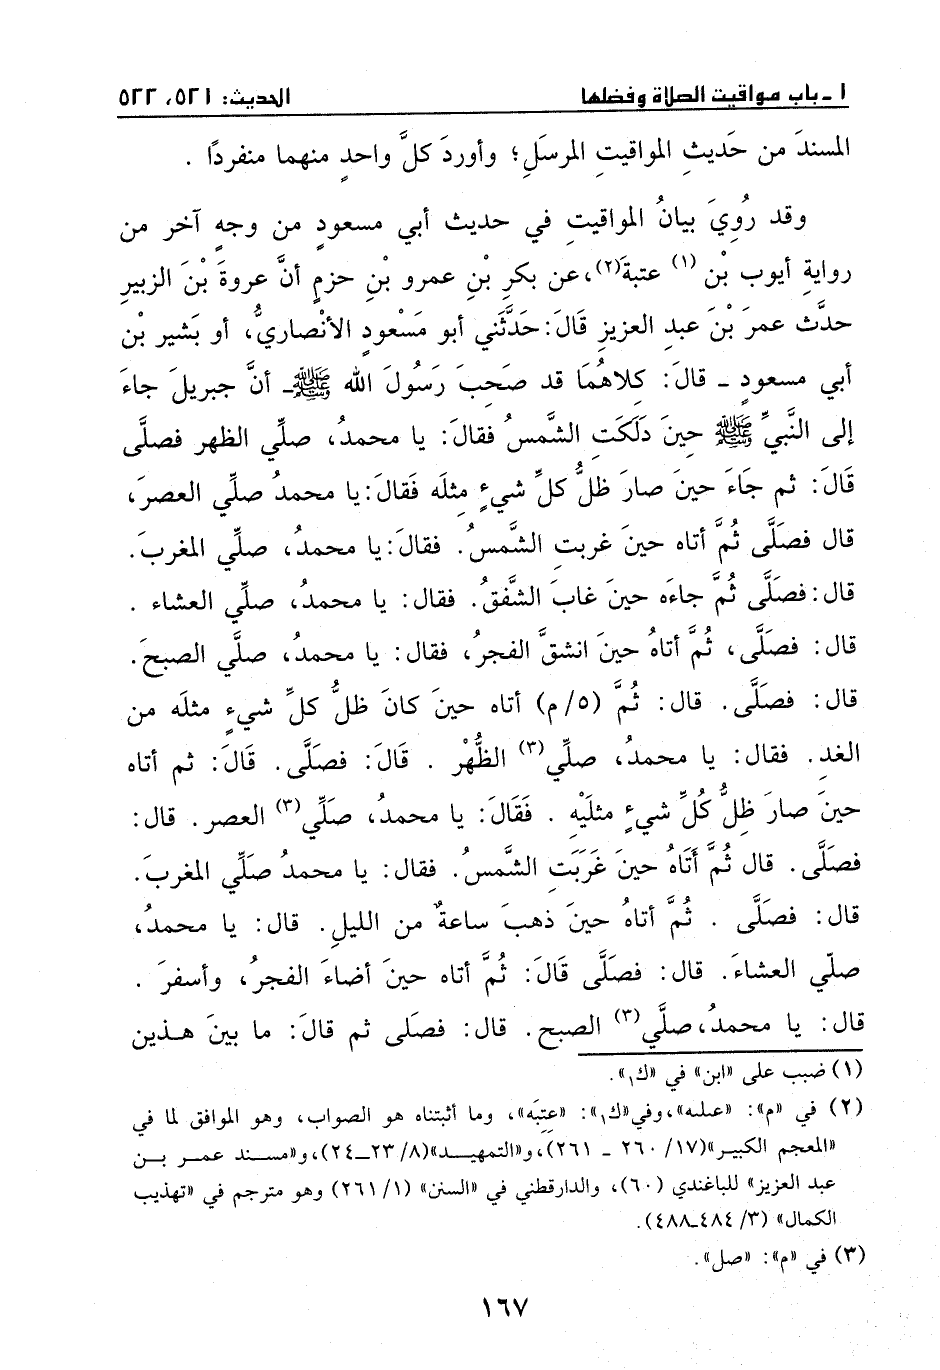 ١ - باب مواقيت الصلاة وفضلها الحديث: ٥٢١، ٥٢٢
المسندَ من حَديثِ المواقيتِ المرسَلِ؛ وأوردَ كلَّ واحدٍ منهما منفردًا .
وقد رُوِيَ بيانُ المواقيتِ في حديث أبي مسعودٍ من وجهٍ آخر من
روايةِ أيوب بْن (١) عتبةَ(٢)، عن بكرِ بْنِ عمرو بْنِ حزمٍ أنَّ عروةَ بْنَ الزبيرِ
حدَّث عمرَ بْنَ عبد العزيزِ قَالَ: حَدَّثَني أبو مَسْعودٍ الأنْصاريُّ، أو بَشير بْن
أبي مسعودٍ ـ قالَ: كلاهُمَا قد صَحِبَ رَسُولَ الله ﷺ ـ أنَّ جبريلَ جاءَ
إلى النَّبيِّ ﷺ حِينَ دَلَكَتِ الشَّمسُ فقالَ: يا محمدُ، صلِّي الظهر فصلَّى
قَالَ: ثم جَاءَ حينَ صارَ ظلُّ كلِّ شيءٍ مثلَه فَقالَ: يا محمدُ صلِّي العصرَ،
قال فصلَّى ثُمَّ أتاه حينَ غربتِ الشَّمسُ. فقالَ: يا محمدُ، صلِّي المغربَ.
قال: فصَلَّى ثُمَّ جاءَه حينَ غابَ الشَّفقُ. فقال: يا محمدُ، صلِّي العشاء .
قال: فصَلَّى، ثُمَّ أتاهُ حينَ انشقَّ الفجرُ، فقال: يا محمدُ، صلَّي الصبحَ.
قال: فصَلَّى. قال: ثُمَّ (٥/ م) أتاه حينَ كانَ ظلُّ كلِّ شيءٍ مثلَه من
الغدِ. فقال: يا محمدُ، صلِّي(٣) الظُّهْر . قَالَ: فصَلَّى. قَالَ: ثم أتاه
حينَ صارَ ظِلُّ كُلِّ شيءٍ مثليْهِ . فَقَالَ: يا محمدُ، صَلِّي(٣) العصر. قال:
فصَلَّى. قال ثُمَّ أَتَاهُ حينَ غَرَبَت الشَّمسُ. فقال: يا محمدُ صلِّي المغربَ.
قال: فصَلَّى . ثُمَّ أتاهُ حينَ ذهبَ ساعةٌ من الليلِ. قال: يا محمدُ،
صلّي العشاءَ. قال: فصَلَّى قَالَ: ثُمَّ أتاه حينَ أضاءَ الفجرُ، وأسفرَ .
قال: يا محمدُ، صلَّي(٣) الصبح. قال: فصَلى ثم قالَ: ما بينَ هـذين
(١) ضبب على «ابن» في «ك١».
(٢) في «م»: «عىلىه»، وفي «ك١»: «عتِبَه»، وما أثبتناه هو الصواب، وهو الموافق لما في
«المعجم الكبير» (١٧/ ٢٦٠ ـ ٢٦١)، و«التمهيـد» (٨/ ٢٣ـ٢٤)، و«مسـند عمـر بـن
عبد العزيز» للباغندي (٦٠)، والدارقطني في «السنن» (١/ ٢٦١) وهو مترجم في «تهذيب
الكمال» (٣/ ٤٨٤ـ٤٨٨).
(٣) في «م»: «صل».
١٦٧